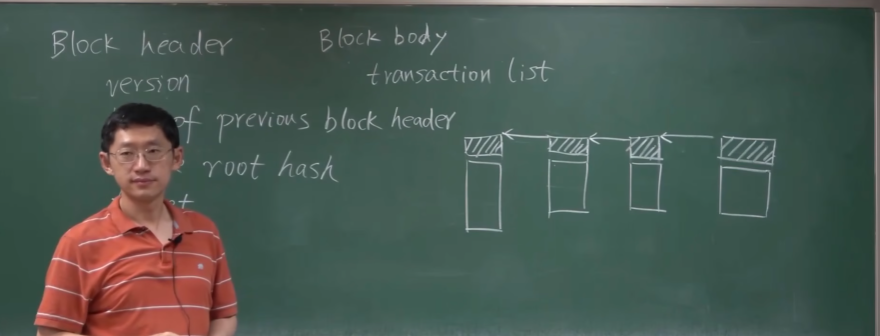 Block header
version
of previous block header
root hash
Block body
transaction list